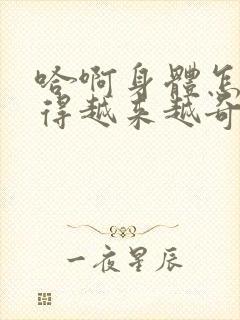 哈啊身體怎
得越来越奇
一夜星辰